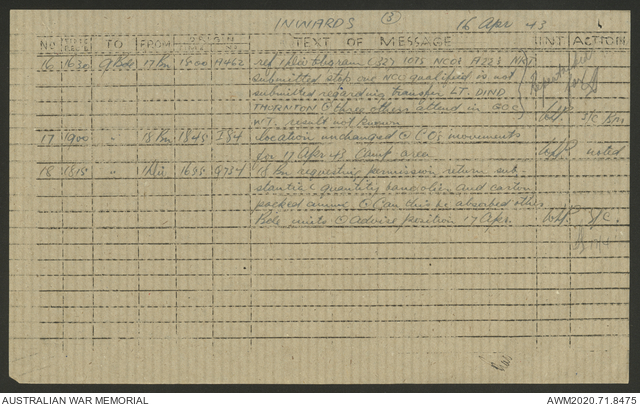 INWARDS 3 16 Apr 43
NO TO FROM ORIGIN TEXT OF MESSAGE INT ACTION
16 1630 9 Bde 17 Bn 1800 A462 ref 1 Div telegram C327 1075 NCOs A223 NR7
submitted stop one NCO qualified is not
submitted regarding transfer LT. DIND
THORNTON & three others attend in GOC
WT. result not known S/C Bns
17 1900 " 18 Bn 1845 I84 location unchanged COs movements
for 17 Apr 43 Camp area noted
18 1815 " 1 Div 1655 G734 18 Bn requesting permission return sub
stantial quantity bandolier and carton
packed ammn. Can this be absorbed other
Bde units Advise position 17 Apr. S/C.
AUSTRALIAN WAR MEMORIAL AWM2020.71.8475